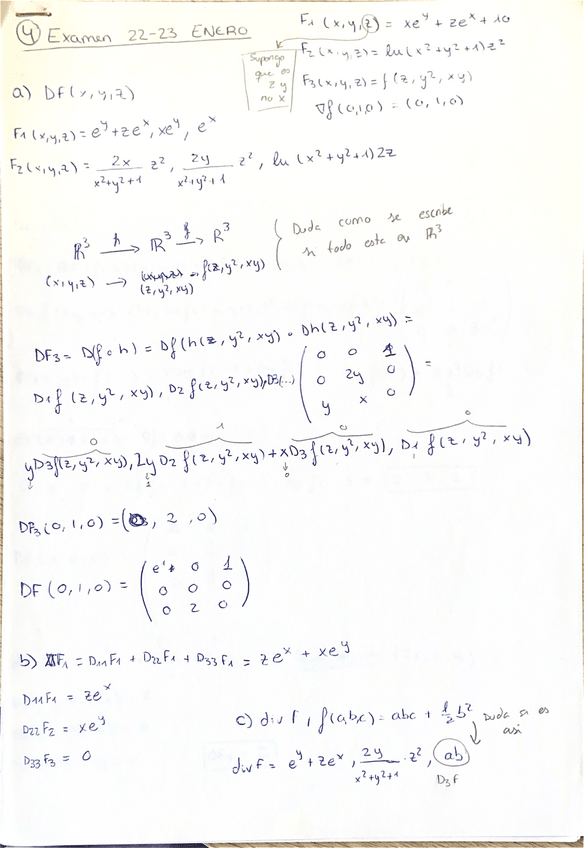 ④ Examen 22-23 ENERO
F1 (x,y,z) = xe^y + ze^x + 10
F2(x,y,z) = ln(x²+y²+1)z²
F3(x,y,z) = f(z,y²,xy)
∇f(0,1,0) = (0,1,0)
Supongo
que es
z y
no x
a) DF(x,y,z)
F1(x,y,z) = e^y + ze^x, xe^y, e^x
F2(x,y,z) = 2x/(x²+y²+1) z², 2y/(x²+y²+1) z², ln(x²+y²+1)2z
ℝ³ →h ℝ³ →f ℝ³
(x,y,z) → f(z,y²,xy)
(z,y²,xy)
Duda como se escribe
si todo esta en ℝ³
DF3 = D(f∘h) = Df(h(z,y²,xy) ∘ Dh(z,y²,xy) =
D1f (z,y²,xy), D2 f(z,y²,xy), D3(...) (0 0 1
0 2y 0
y x 0) =
0 1 0 0
yD3f(z,y²,xy), 2y D2 f(z,y²,xy) + xD3f(z,y²,xy), D1 f(z,y²,xy)
1 0
DF3(0,1,0) = ( , 2, 0)
DF(0,1,0) = (e^1 0 1
0 0 0
0 2 0)
b) ΔF1 = D11F1 + D22F1 + D33F1 = ze^x + xe^y
D11F1 = ze^x
D22F2 = xe^y
D33F3 = 0
c) div F, f(a,b,c) = abc + 1/2 b²
Duda si es
asi
div F = e^y + ze^x, 2y/(x²+y²+1) · z², ab
D3f